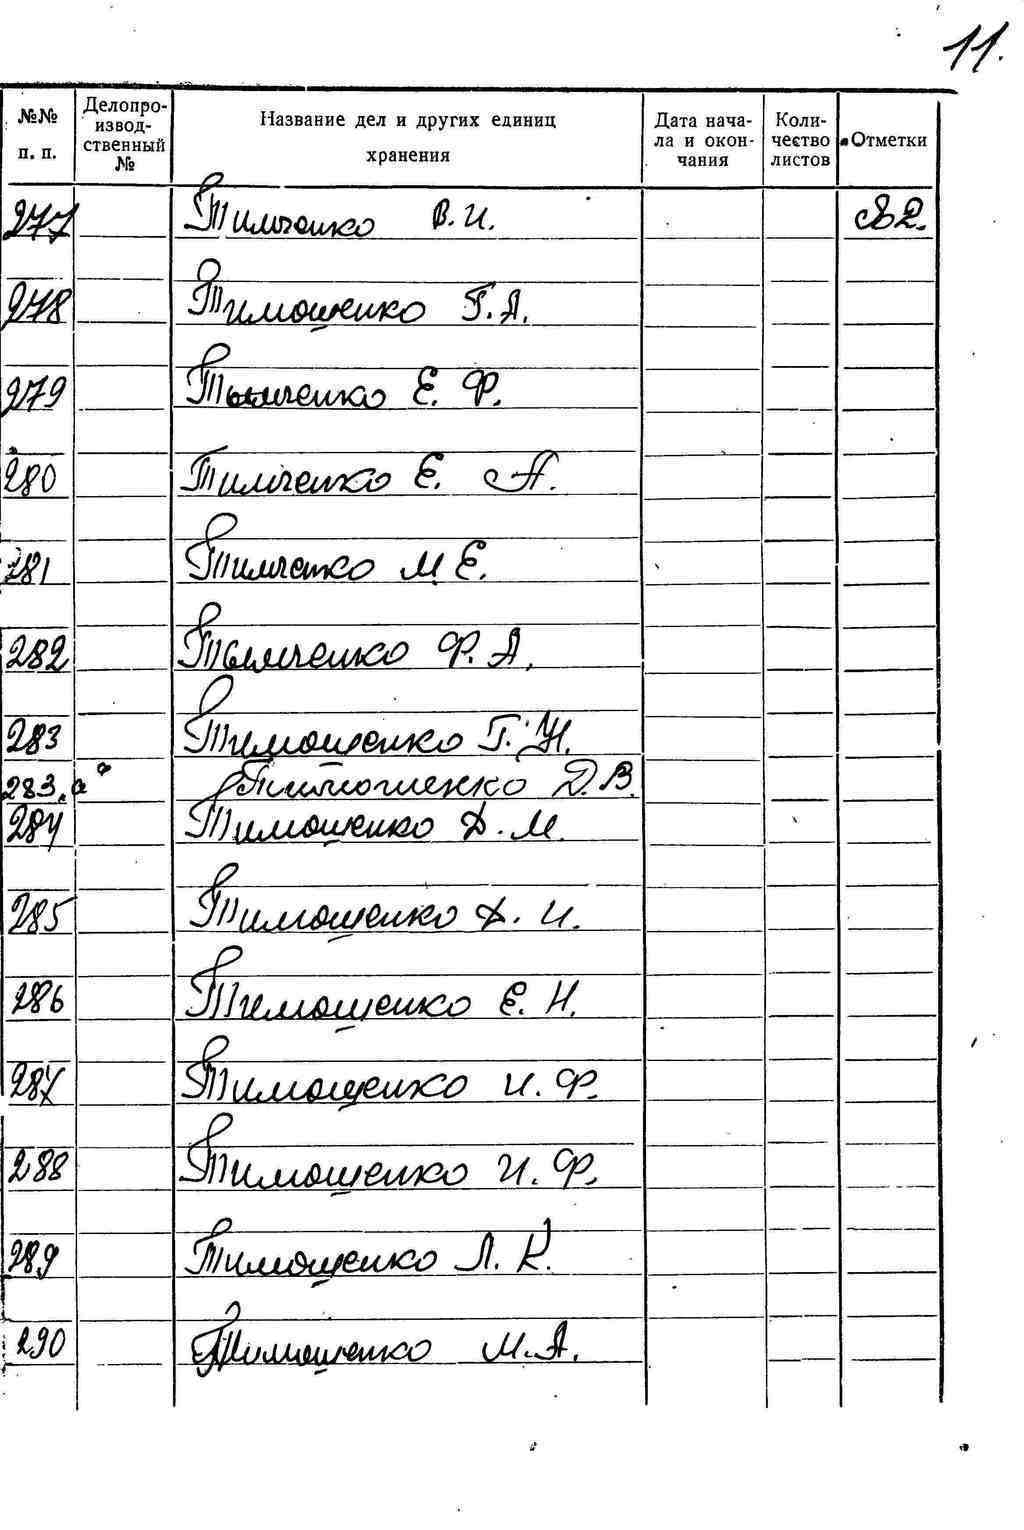 11.
№№ п. п. Делопро-извод-ственный № Название дел и других единиц хранения Дата нача-ла и окон-чания Коли-чество листов Отметки
277 Тимченко В. И.
278 Тимошенко Г. А.
279 Тымченко Е. Ф.
280 Тимченко Е. А.
281 Тимченко М. Е.
282 Тымченко Ф. А.
283 Тимошенко Г. Н.
283.а Тимошенко Д. В.
284 Тимошенко Д. М.
285 Тимошенко Д. И.
286 Тимошенко Е. Н.
287 Тимощенко И. Ф.
288 Тимошенко И. Ф.
289 Тимошенко Л. К.
290 Тимошенко М. А.